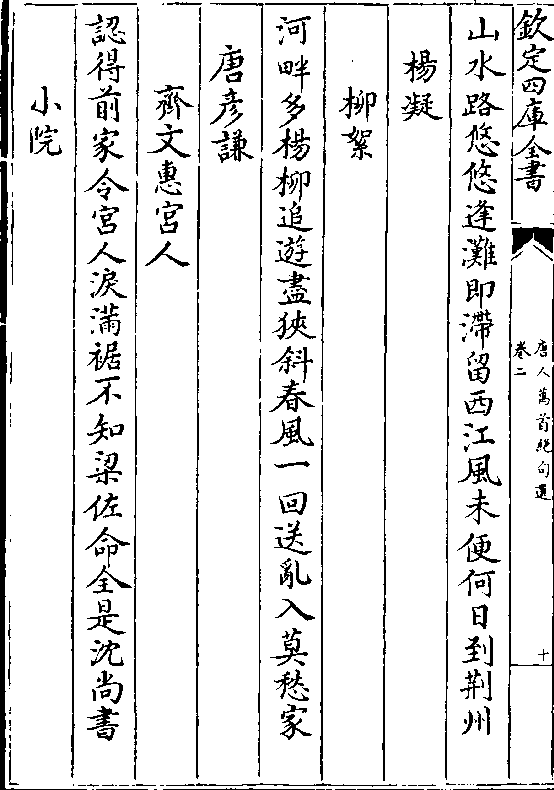 欽定四庫全書
唐人萬首絶句選
卷二
十
山水路悠悠逢灘即滯留西江風未便何日到荆州
楊凝
柳絮
河畔多楊柳追遊盡狹斜春風一回送亂入莫愁家
唐彦謙
齊文惠宮人
認得前家令宮人淚滿裾不知梁佐命全是沈尚書
小院